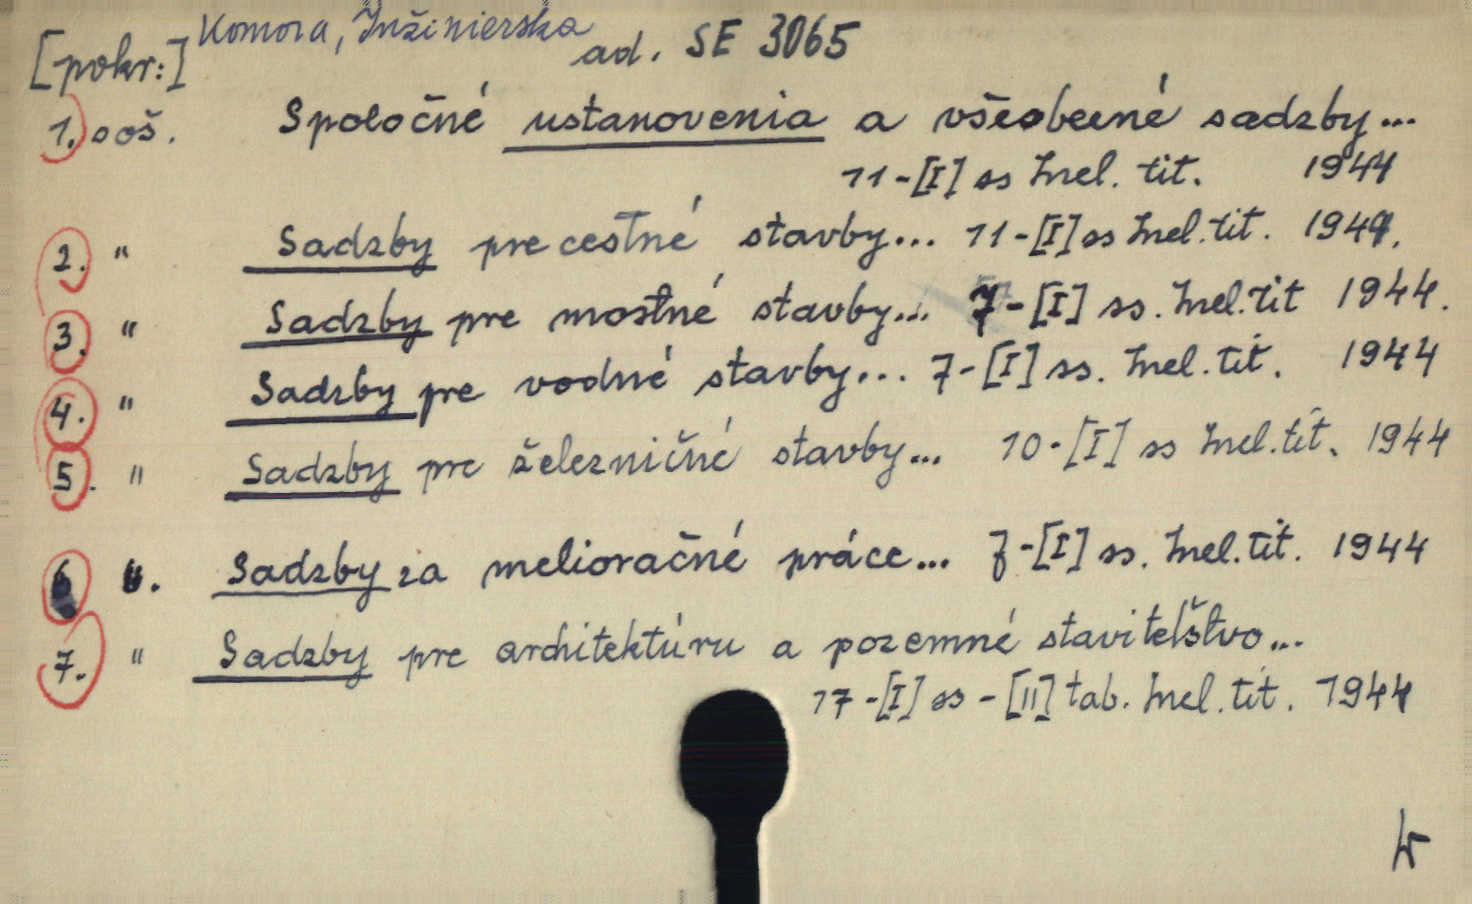 Komora, Inžinierska
[pokr:] ad. SE 3065
1. soš. Spoločné ustanovenia a všeobecné sadzby...
11-[I] ss Mel. tit. 1944
2. " Sadzby pre cestné stavby... 11-[I] ss Mel. tit. 1944.
3. " Sadzby pre mostné stavby... 7-[I] ss. Mel. tit 1944.
4. " Sadzby pre vodné stavby... 7-[I] ss. Mel. tit. 1944
5. " Sadzby pre železničné stavby... 10-[I] ss Mel. tit. 1944
6 ". Sadzby za melioračné práce... 7-[I] ss. Mel. tit. 1944
7. " Sadzby pre architektúru a pozemné staviteľstvo...
17-[I] ss - [II] tab. Mel. tit. 1944